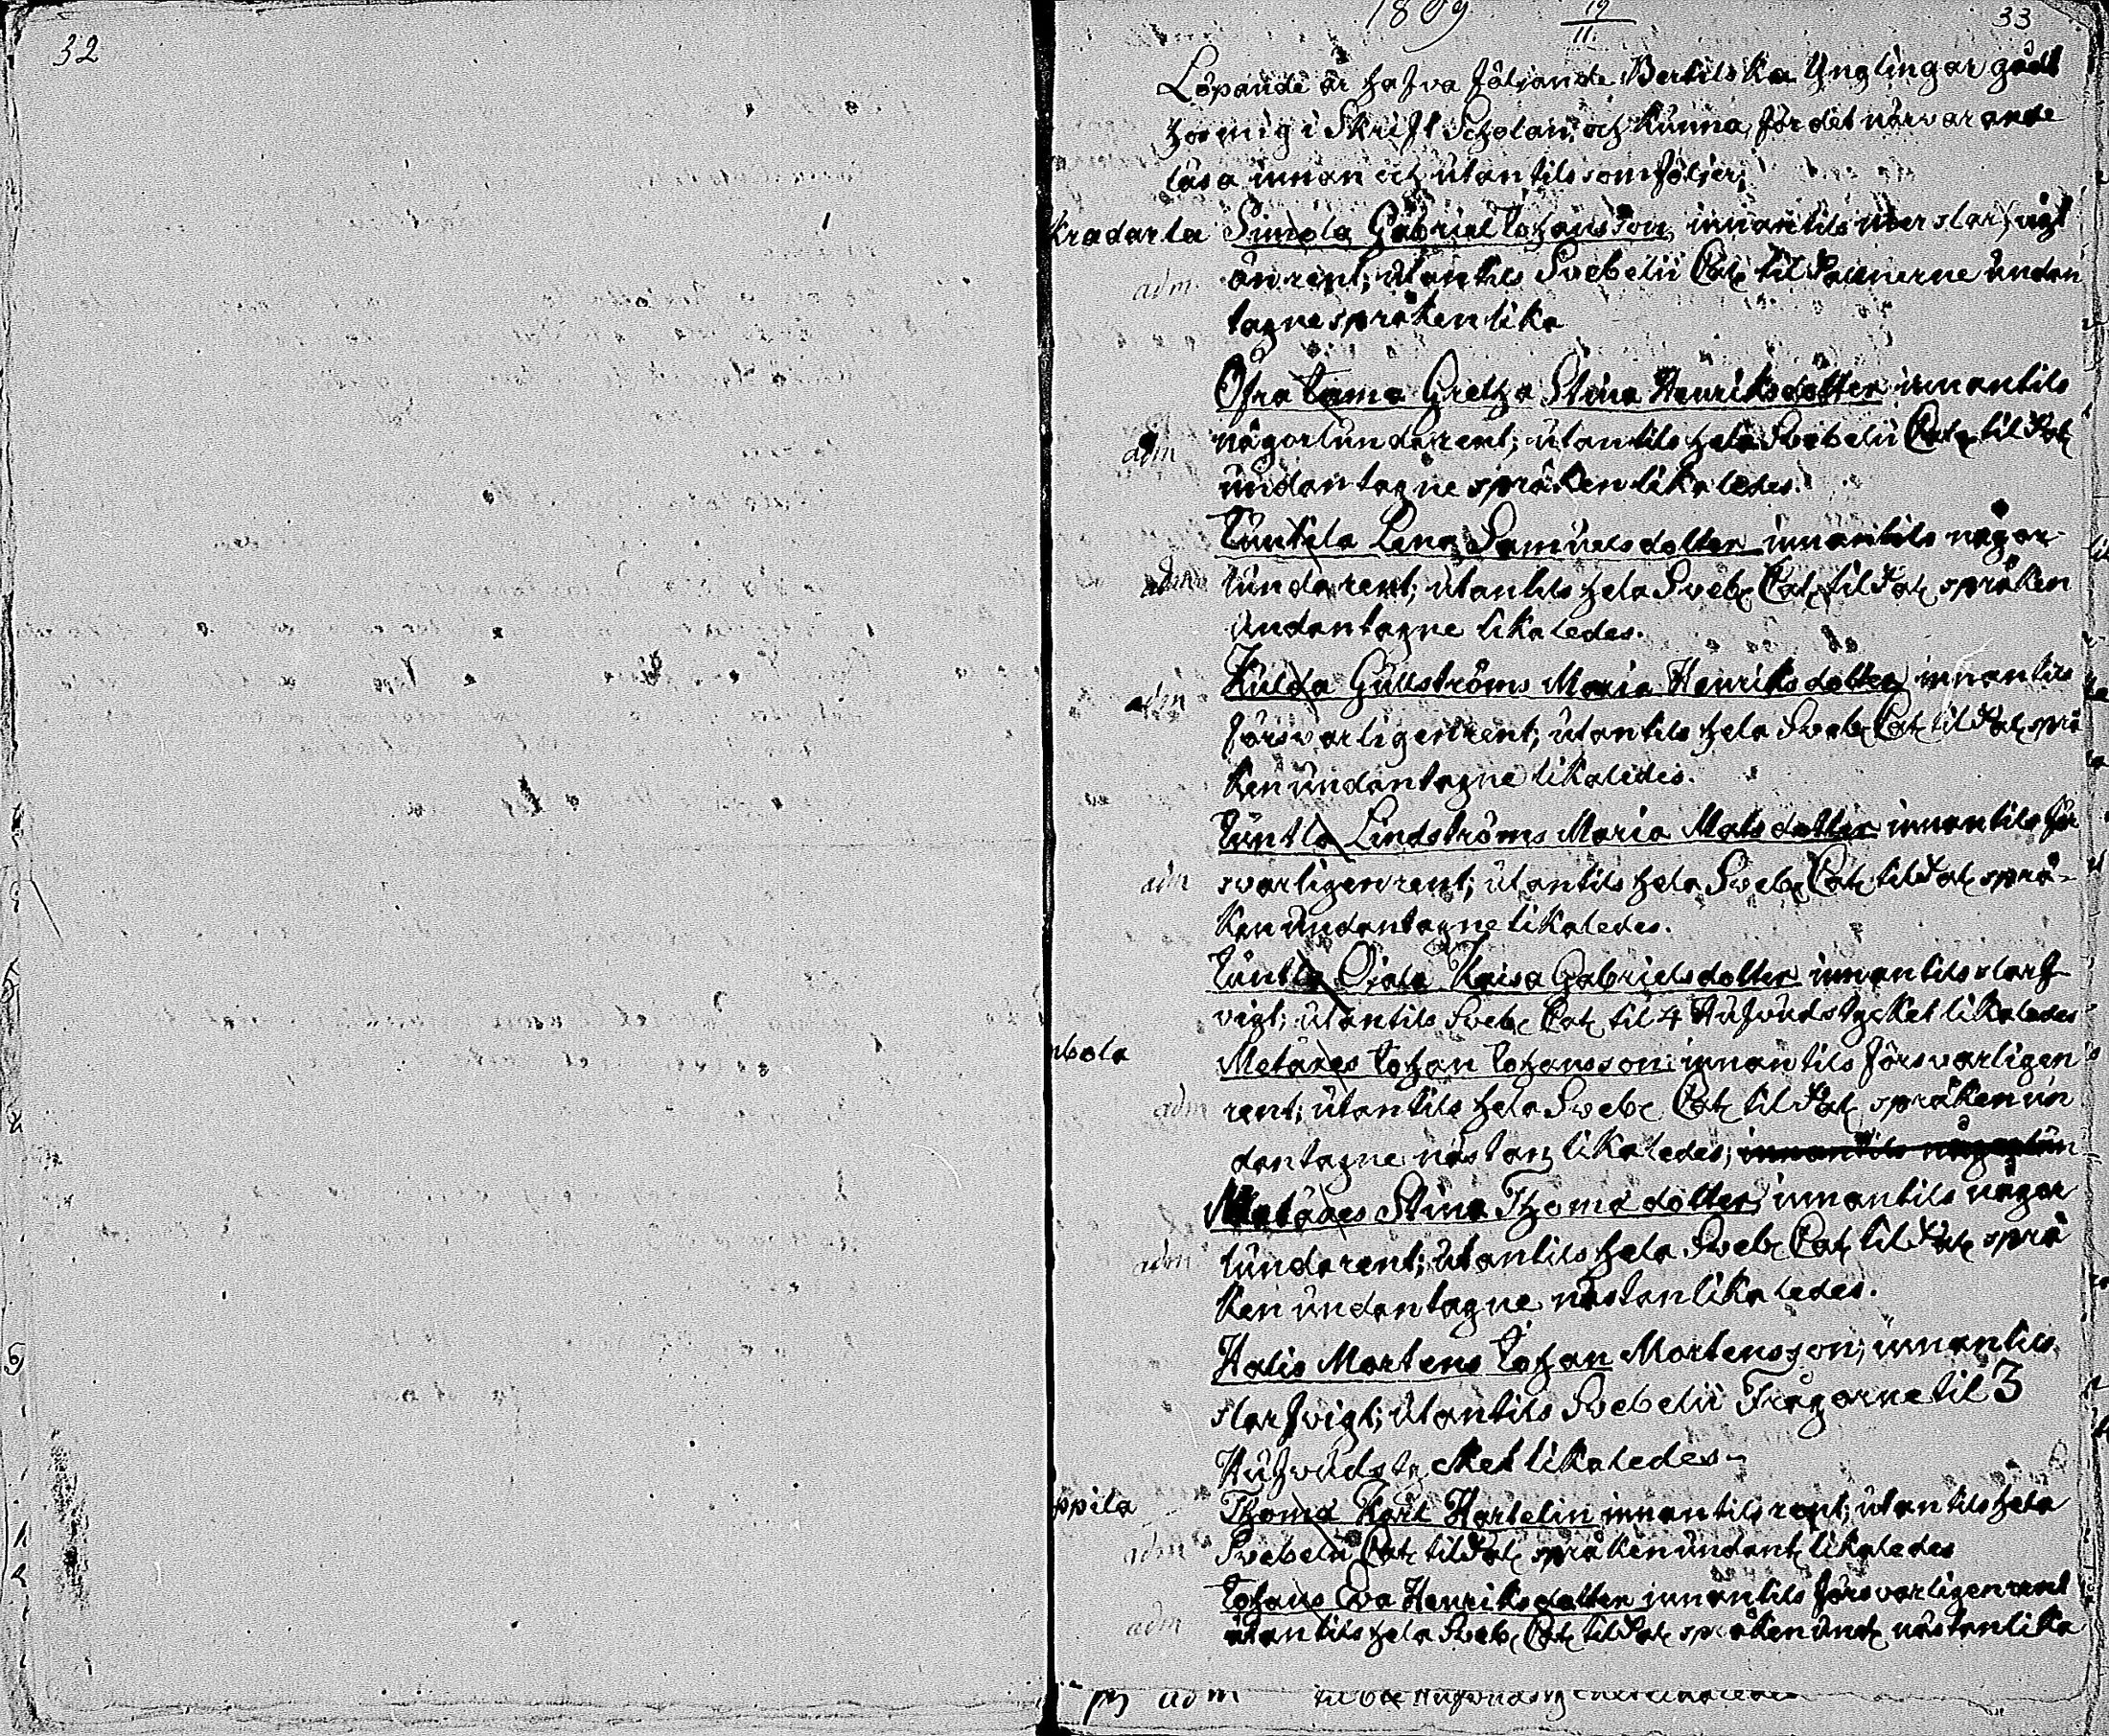 32
1809 19/11. 33
Löpande år hafva följande Bertilska Ynglingar gådt
hos mig i Skrift Scholan, och kunna, för det närvarande
läsa innan och utantils som följer;
Kradarla Simola Gabriel Johansson, innantils mer slarfvigt
adm än rent; utantils Svebelii Cat: til undan
tagne språken lika
Öfra Juma Gretha Stina Henriksdotter innantils
adm någorlunda rent; utantils hela Svebelii Cat: til Tab:
undantagne språken likaledes.
Juntila Lena Samuelsdotter innantils någor-
adm lunda rent; utantils hela Sveb: Cat: til Tab: språken
undantagne likaledes.
Kulda Gullströms Maria Henriksdotter innantils
adm försvarligen rent; utantils hela Sveb: Cat: til Tab: språ
ken undantagne likaledes.
Juntla Lindströms Maria Matsdotter innantils för
adm svarligen rent; utantils hela Sveb: Cat: til Tab: språ-
ken undantagne likaledes.
Juntla Ojala Kaisa Gabrielsdotter innantils slarf-
vigt; utantils Sveb: Cat: til 4 Hufvudstycket likaledes
bola Metäkes Johan Johansson: innantils försvarligen
adm rent; utantils hela Sveb: Cat: til Tab: språken un
dantagne nästan likaledes; innantils någorlun
Metäkes Stina Thomädotter innantils någor
adm lunda rent; utantils hela Sveb: Cat: til Tab: språ
ken undantagne nästan likaledes.
Halis Mortens Johan Mortensson, innantils
slarfvigt; utantils Svebelii Frågorne til 3
Hufvudstycket likaledes
ppila Thoma Karl Hartelin innantils rent; utantils hela
adm Svebelii Cat: til Tab: språken undant: likaledes
Johans Eva Henriksdotter innantils försvarligen rent
adm utantils hela Sveb: Cat: til Tab: språken und: nästan lika
adm